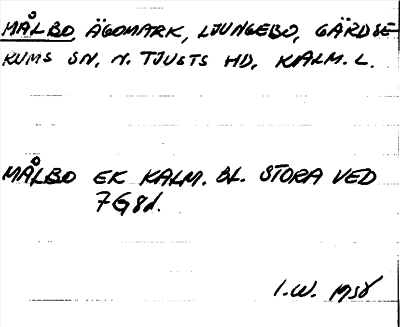 MÅLBO ÄGOMARK, LJUNGEBO, GÄRDSE-
RUMS SN, N. TJUSTS HD, KALM. L.
MÅLBO EK KALM. BL. STORA VED
7G8d.
I.W. 1958